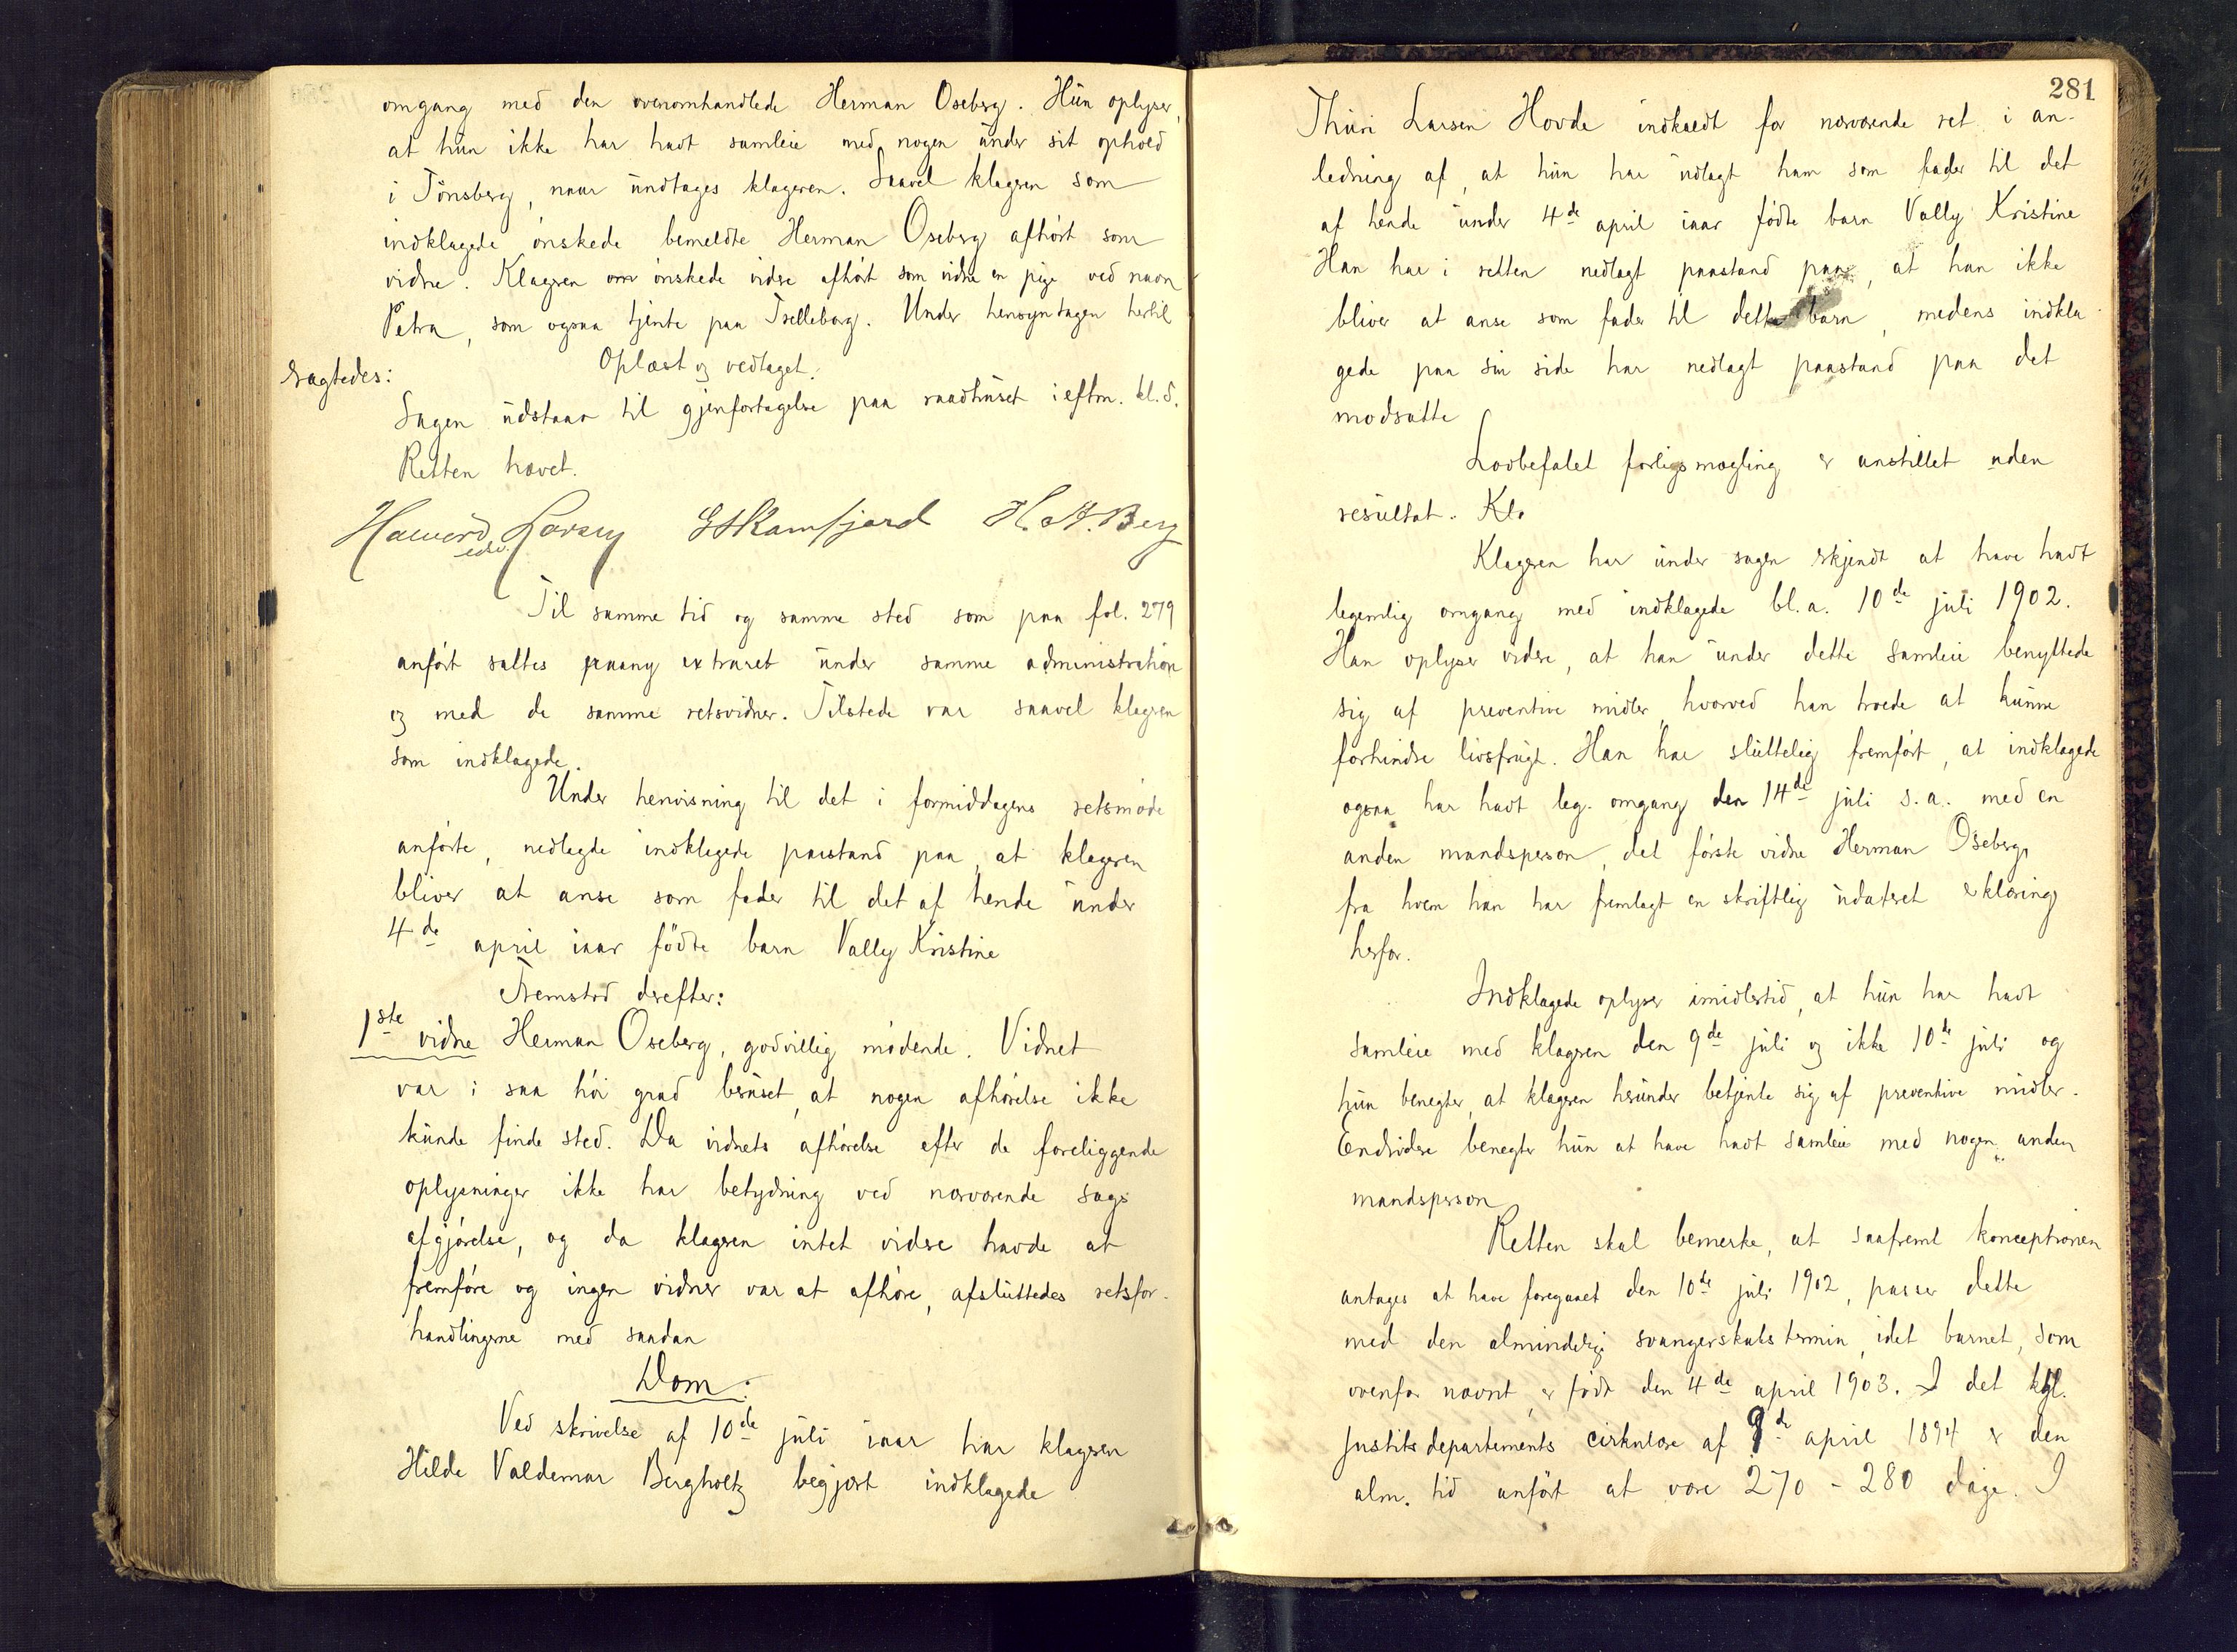 omgang med den ovenomhandlede Herman Oseberg. Hun oplyser,
at hun ikke har havt samleie med nogen under sit ophold
i Tönsberg, naar undtages klageren. Saavel klageren som
indklagede önskede bemeldte Herman Oseberg afhört som
vidne. Klageren önskede videre afhört som vidne en pige ved navn
Petra, som ogsaa tjente paa Trelleborg. Under hensyntagen hertil
Oplæst og vedtaget.
ragtedes:
Sagen udstaar til gjenfortagelse paa raadhuset i eftm. kl. 5.
Retten hævet.
Larsen G Ramfjord H. A. Berg
edv.
Til samme tid og samme sted som paa fol. 279
anfört sattes paany extraret under samme administration
og med de samme retsvidner. Tilstede var saavel klageren
som indklagede.
Under henvisning til det i formiddagens retsmöde
anförte, nedlagde indklagede paastand paa, at klageren
bliver at anse som fader til det af hende under
4de april iaar födte barn Vally Kristine
Fremstod derefter:
1ste vidne Herman Oseberg, godvillig mödende. Vidnet
var i saa höi grad beruset, at nogen afhörelse ikke
kunde finde sted. Da vidnets afhörelse efter de foreliggende
oplysninger ikke har betydning ved nærværende sags
afgjörelse, og da klageren intet videre havde at
fremföre og ingen vidner var at afhöre, afsluttedes retsfor-
handlingerne med saadan
Dom:
Ved skrivelse af 10de juli iaar har klageren
Hilde Valdemar Bergholtz begjært indklagede
281
Thuri Larsen Hovde indkaldt for nærværende ret i an-
ledning af, at hun har udlagt ham som fader til det
af hende under 4de april iaar födte barn Vally Kristine
Han har i retten nedlagt paastand paa, at han ikke
bliver at anse som fader til dette barn, medens indkla-
gede paa sin side har nedlagt paastand paa det
modsatte
Lovbefalet forligsmægling er anstillet uden
resultat. Kla
Klageren har under sagen erkjendt at have havt
legemlig omgang med indklagede bl. a. 10de juli 1902.
Han oplyser videre, at han under dette samleie benyttede
sig af preventive midler, hvorved han troede at kunne
forhindre livsfrugt. Han har sluttelig fremfört, at indklagede
ogsaa har havt leg. omgang den 14de juli s. a. med en
anden mandsperson, det förste vidne Herman Oseberg,
fra hvem han har fremlagt en skriftlig udateret erklæring
herfor.
Indklagede oplyser imidlertid, at hun har havt
samleie med klageren den 9de juli og ikke 10de juli og
hun benegter, at klageren herunder betjente sig af preventive midler.
Endvidere benegter hun at have havt samleie med nogen anden
mandsperson
Retten skal bemerke, at saafremt konceptionen
antages at have foregaaet den 10de juli 1902, passer dette
med den almindelige svangerskabstermin, idet barnet, som
ovenfor nævnt, er födt den 4de april 1903. I det kgl.
Justitsdepartements cirkulære af 9de april 1894 er den
alm. tid anfört at være 270 - 280 dage. I